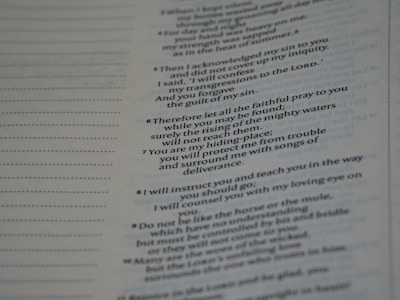 ³ When I kept silent,
my bones wasted away
through my groaning all day long.
⁴ For day and night
your hand was heavy on me;
my strength was sapped
as in the heat of summer.
⁵ Then I acknowledged my sin to you
and did not cover up my iniquity.
I said, ‘I will confess
my transgressions to the LORD.’
And you forgave
the guilt of my sin.
⁶ Therefore let all the faithful pray to you
while you may be found;
surely the rising of the mighty waters
will not reach them.
⁷ You are my hiding-place;
you will protect me from trouble
and surround me with songs of
deliverance.
⁸ I will instruct you and teach you in the way
you should go;
I will counsel you with my loving eye on
you.
⁹ Do not be like the horse or the mule,
which have no understanding
but must be controlled by bit and bridle
or they will not come to you.
¹⁰ Many are the woes of the wicked,
but the LORD's unfailing love
surrounds the one who trusts in him.
¹¹ Rejoice in the LORD and be glad, you